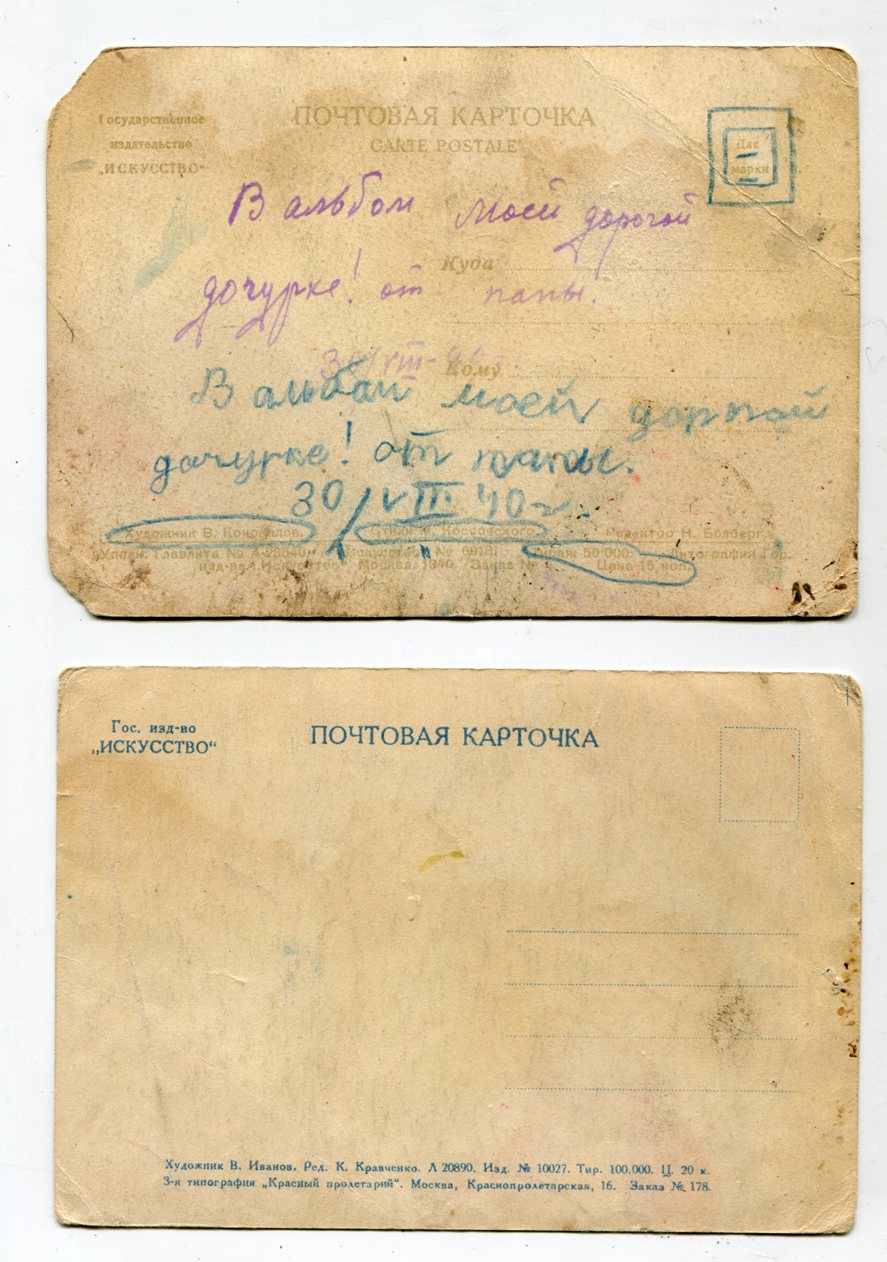 Государственное
издательство
„ИСКУССТВО“
ПОЧТОВАЯ КАРТОЧКА
CARTE POSTALE
Для
марки
В альбом моей дорогой
Куда
дочурке! от папы.
30/VIII-40г.
Кому
В альбом моей дорогой
дочурке! от папы.
30/VIII 40 г.
Художник В. Коновалов. Редактор Н. Болберг
Уполн. Главлита № А-28640. „Искусство“ № 6918. Тираж 50 000. Литография Гос.
изд-ва „Искусство“ Москва 1940. Заказ № Цена 15 коп.
Гос. изд-во
„ИСКУССТВО“
ПОЧТОВАЯ КАРТОЧКА
Художник В. Иванов. Ред. К. Кравченко. Л 20890. Изд. № 10027. Тир. 100.000. Ц. 20 к.
3-я типография „Красный пролетарий“. Москва, Краснопролетарская, 16. Заказ № 178.